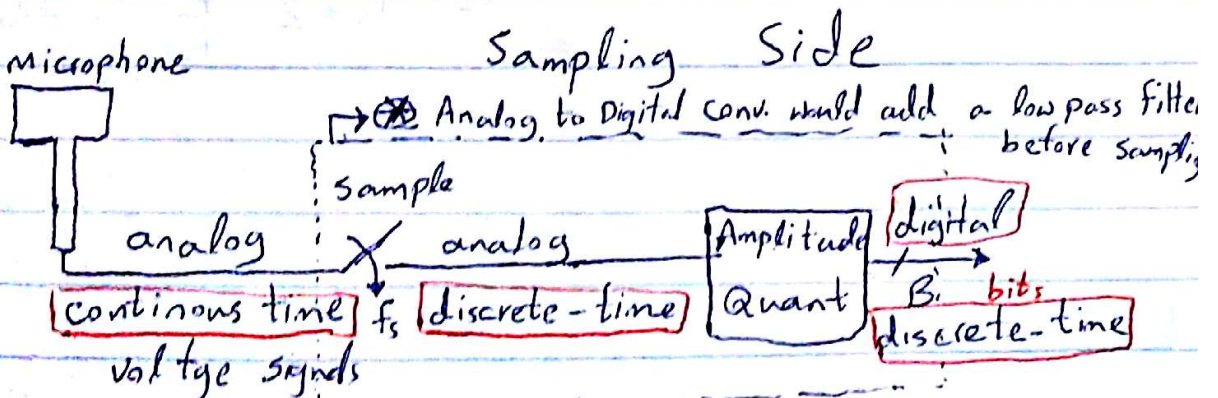 Sampling Side
Microphone
Analog to Digital conv. would add a low pass filter
before sampling
sample
analog
analog
Amplitude
Quant
digital
continous time
fs
discrete-time
B.
bits
discrete-time
voltge signds